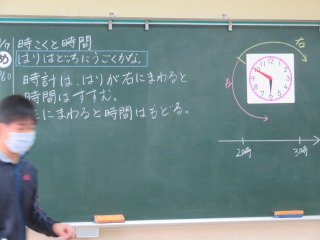 時こくと時間
め はりはどっちにうごくかな。
時計は、はりが右にまわると
時間はすすむ。
にまわると時間はもどる。
右
2時
3時